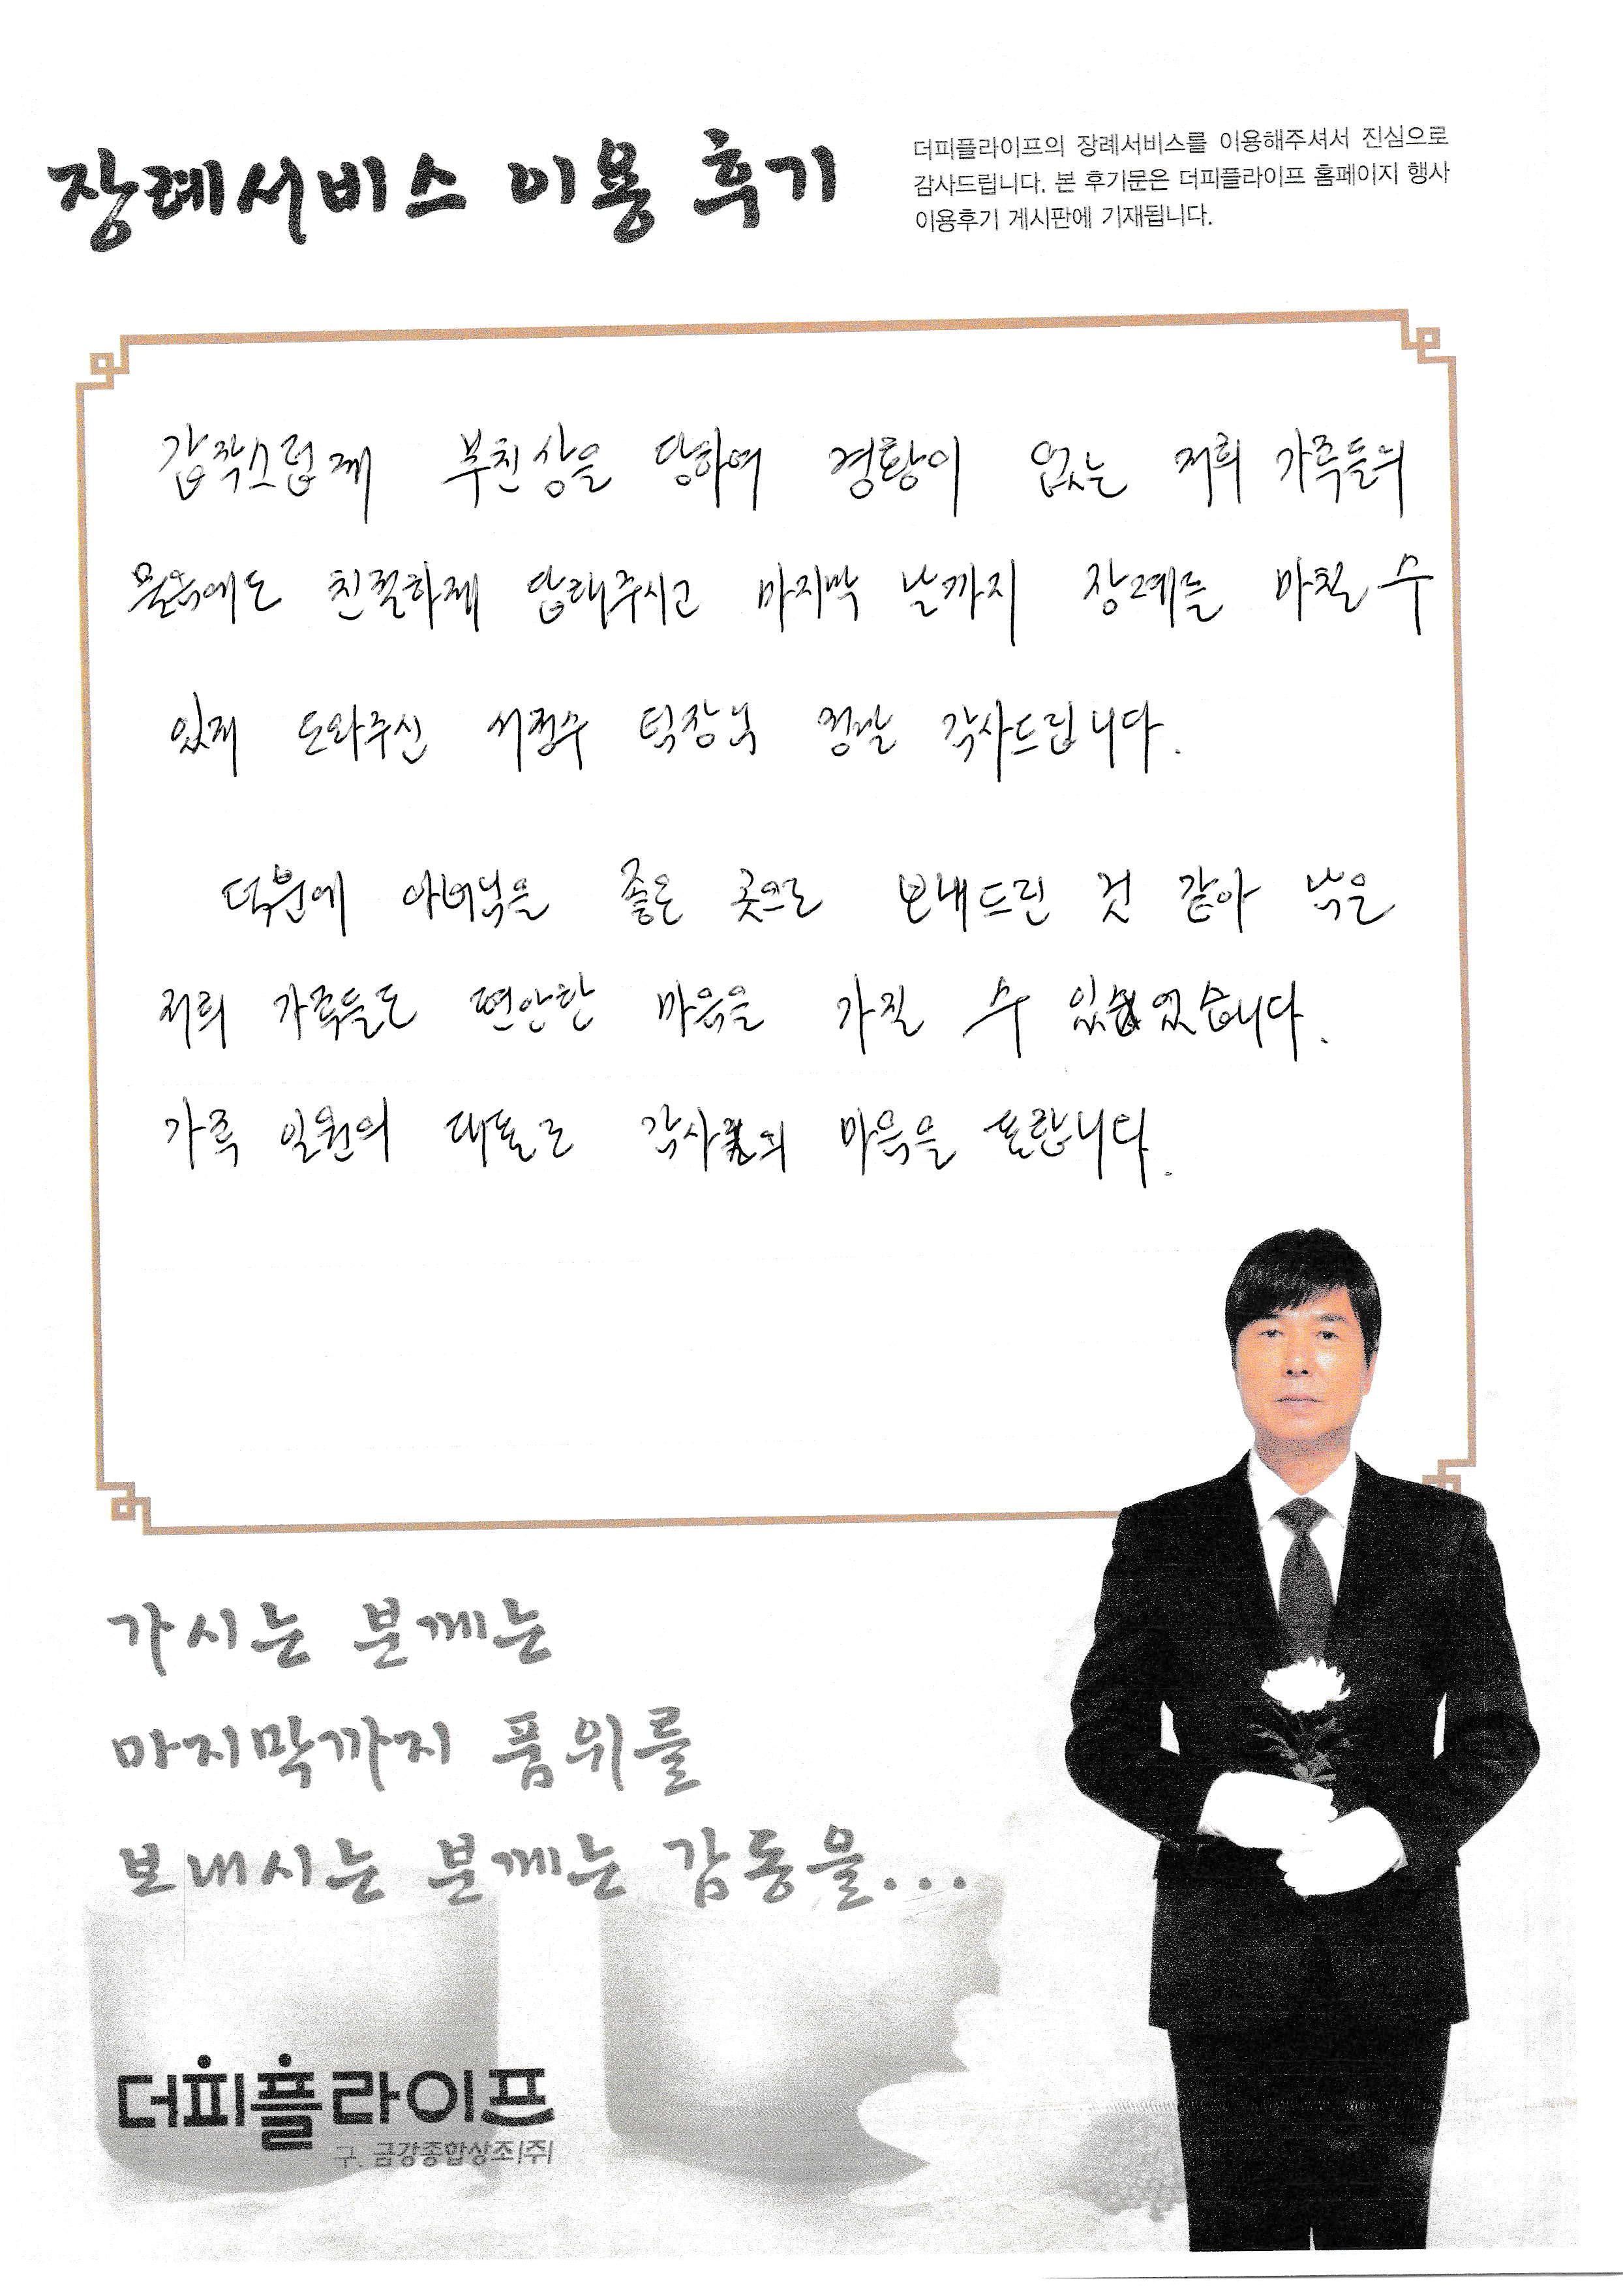 장례서비스 이용 후기
더피플라이프의 장례서비스를 이용해주셔서 진심으로
감사드립니다. 본 후기문은 더피플라이프 홈페이지 행사
이용후기 게시판에 기재됩니다.
갑작스럽게 부친상을 당하여 경황이 없는 저희 가족들의
물음에도 친절하게 답해주시고 마지막 날까지 장례를 마칠 수
있게 도와주신 서정수 팀장님 정말 감사드립니다.
덕분에 아버님을 좋은 곳으로 보내드린 것 같아 남은
저희 가족들도 편안한 마음을 가질 수 있었습니다.
가족 일원의 대표로 감사의 마음을 표합니다.
가시는 분께는
마지막까지 품위를
보내시는 분께는 감동을...
더피플라이프
구. 금강종합상조|주|